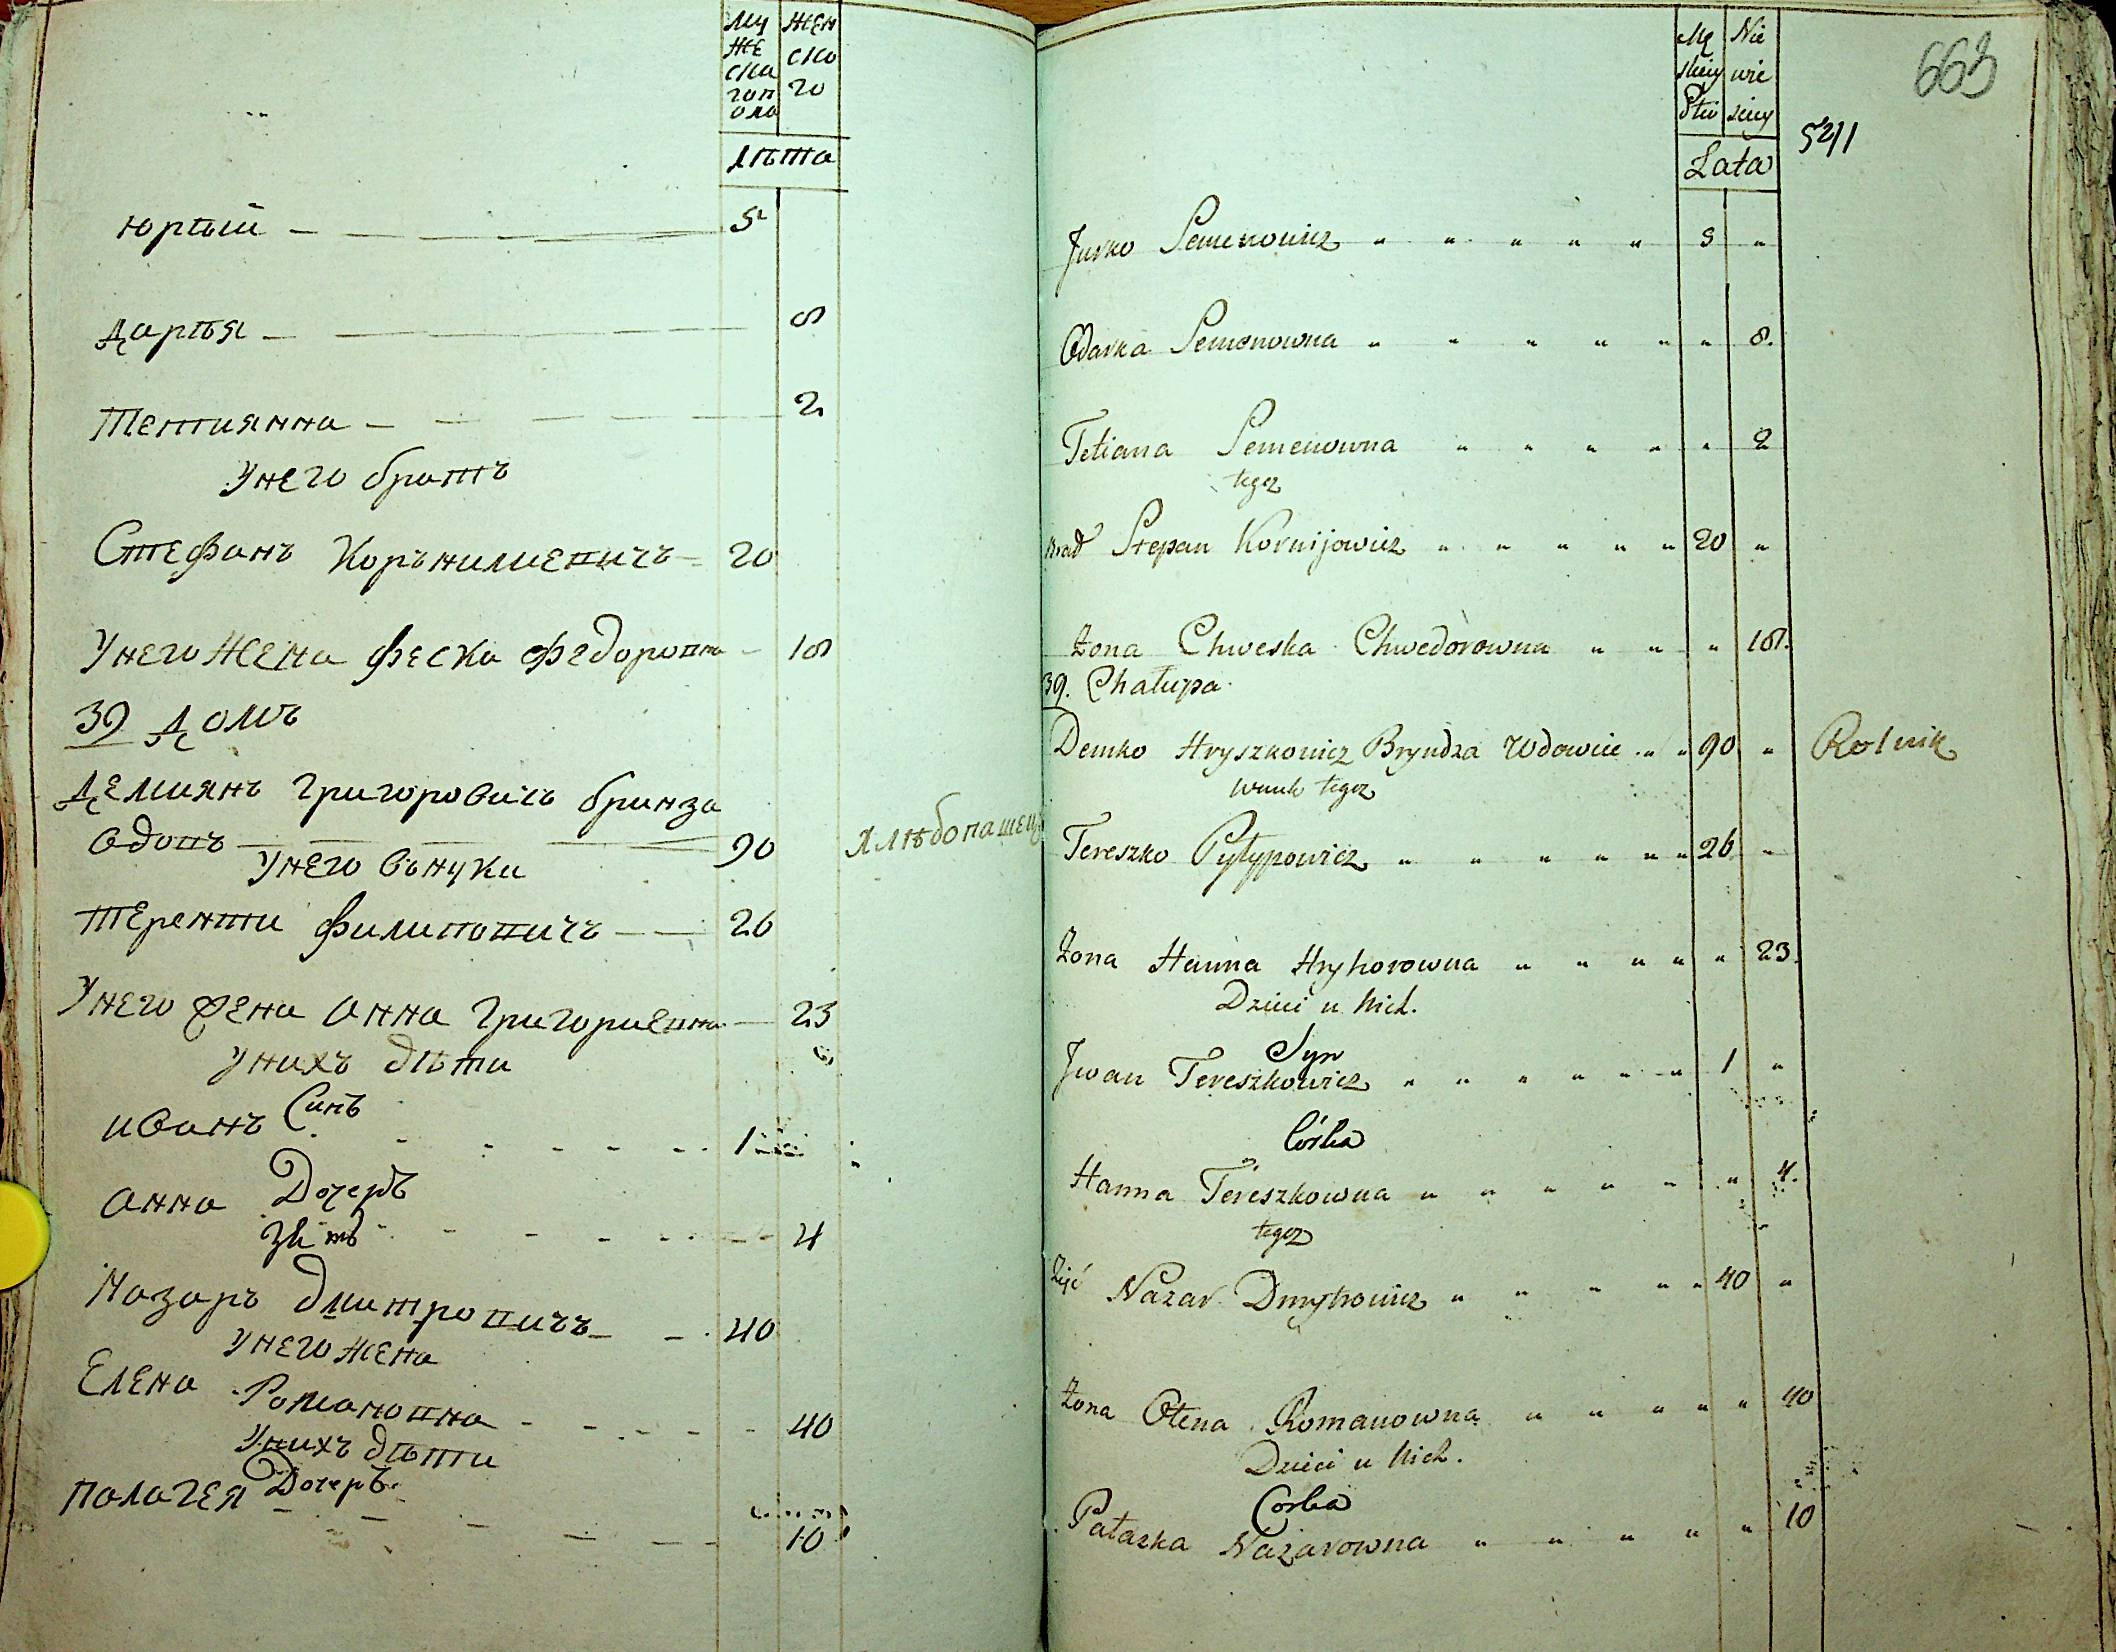 му
же
ска
гоп
ола
жен
ско
го
лѣта
юрѣй 5
дарѣя 8
тетиянна 2
унего братъ
Стефанъ Корънилиевичъ 20
унего жена феска федоровна 18
39 домъ
демиянъ григоровичъ бринза
вдовъ 90 хлѣбопашец
унего вънуки
терентии филиповичъ 26
унего жена анна григориевна 23
унихъ дѣти
иванъ Синъ 1
анна Дочеръ 4
зѣтъ
Назаръ дмитровичъ 40
унего жена
Елена Романовна 40
унихъ дѣти
палагея Дочеръ 10
663
5211
Mę
skiey
Płci
Nie
wie
sciey
Lata
Jurko Semenowicz 5
Odarka Semenowna 8.
Tetiana Semenowna 2
tegoz
brad Stepan Kornijowicz 20
żona Chweska Chwedorowna 18.
39. Chałupa
Demko Hryszkowicz Bryndza Wdowiec 90 Rolnik
wnuk tegoz
Tereszko Pyłypowicz 26
żona Hanna Hryhorowna 23.
Dzieci u Nich.
Syn
Jwan Tereszkowicz 1
Córka
Hanna Tereszkowna 4.
tegoz
Zięć Nazar Dmytrowicz 40
żona Ołena Romanowna 40
Dzieci u Nich.
Corka
Pałazka Nazarowna 10